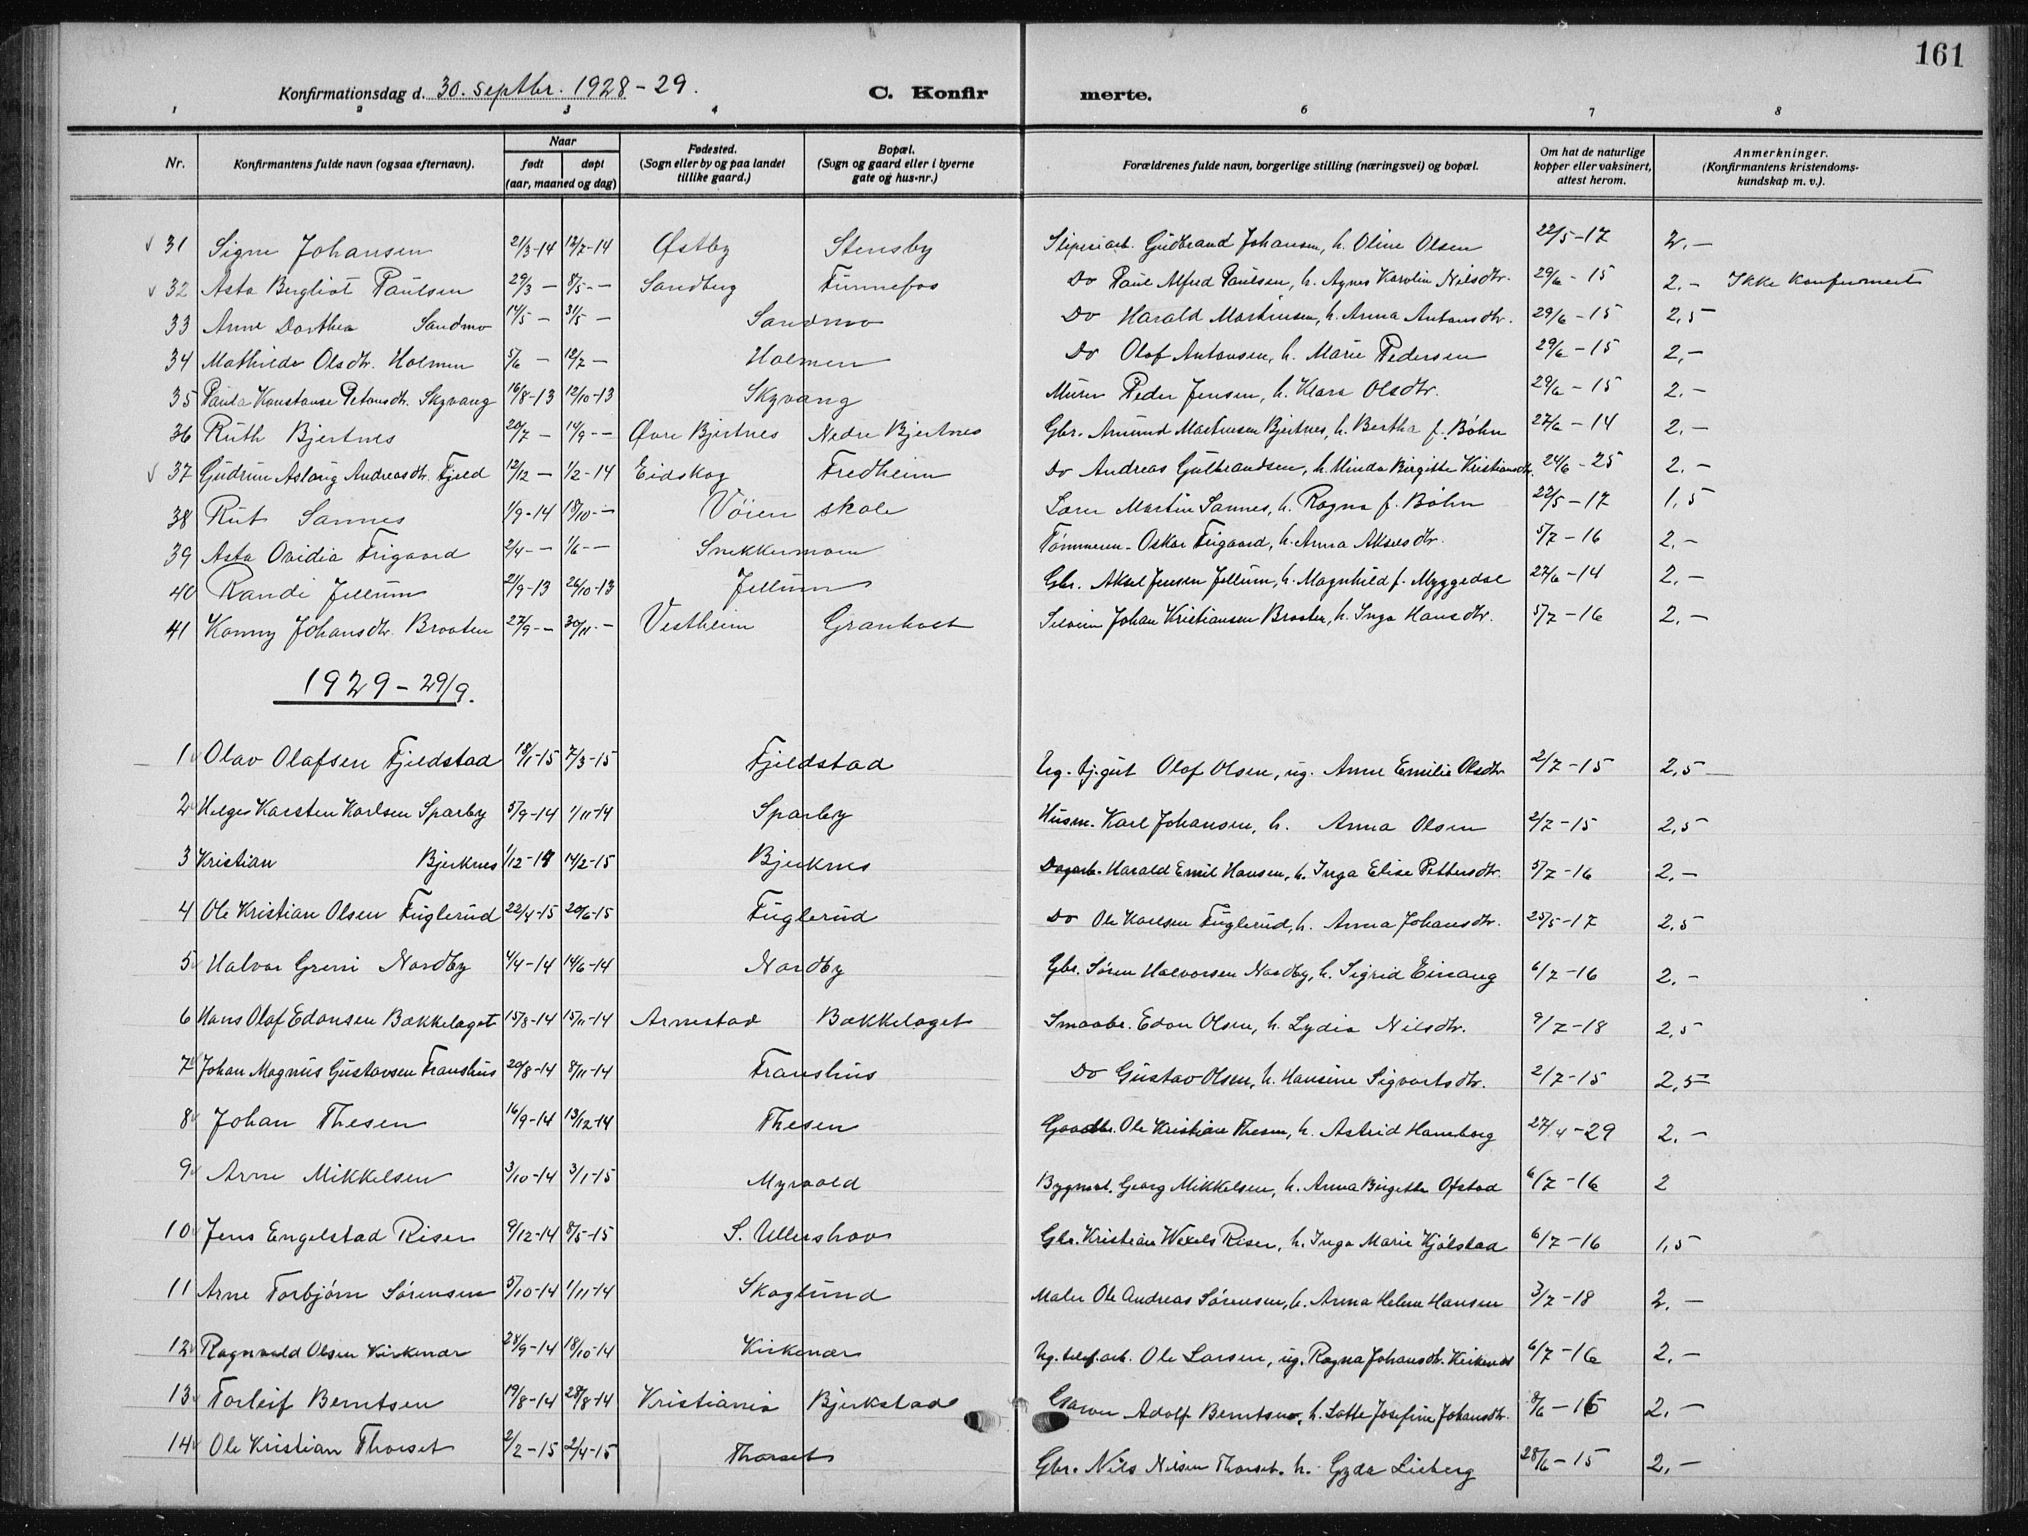 161
Konfirmationsdag d. 30. septbr. 1928-29. C. Konfir merte.
1 2 3 4 6 7 8
Nr. Konfirmantens fulde navn (ogsaa efternavn). Naar født døpt (aar, maaned og dag) Fødested. (Sogn eller by og paa landet tillike gaard.) Bopæl. (Sogn og gaard eller i byerne gate og hus-nr.) Forældrenes fulde navn, borgerlige stilling (næringsvei) og bopæl. Om hat de naturlige kopper eller vaksinert, attest herom. Anmerkninger. (Konfirmantens kristendoms-kundskap m. v.).
31 Signe Johansen 21/3-14 12/7-14 Østby Stensby Sliperiarb. Gudbrand Johansen, h. Oline Olsen 22/5-17 2.-
32 Asta Bergliot Paulsen 29/3 - 8/5 - Sandberg Funnefos Do Paul Alfred Paulsen, h. Agnes Karolin Nilsdtr. 29/6-15 2.- Ikke konfirmert
33 Anne Dorthea Sandmo 14/5 - 31/5 - Sandmo Do Harald Martinsen, h. Anna Antonsdtr. 29/6-15 2,5
34 Mathilde Olsdtr. Holmen 5/6 - 12/7 - Holmen Do Olaf Antonsen, h. Marie Pedersen 29/6-15 2,-
35 Paula Konstanse Skyvang 16/8-13 12/10-13 Skyvang Murer Peder Jensen, h. Klara Olsdtr. 29/6-15 2.-
36 Ruth Bjertnes 20/7 - 14/9 - Øvre Bjertnes Nedre Bjertnes Gbr. Amund Martinsen Bjertnes, h. Bertha f. Bøhn 27/6-14 2.-
37 Gudrun Aslaug Andreasdtr. Fjeld 12/12 - 1/2-14 Eidskog Fredheim Do Andreas Gulbrandsen, h. Minda Birgitte Kristiansdtr. 24/6-25 2.-
38 Rut Sannes 1/9-14 18/10 - Vöien skole Lærer Martin Sannes, h. Ragna f. Bøhn 22/5-17 1,5
39 Asta Ovidia Frigaard 2/4 - 1/6 - Snekkermoen Tömmerm. Oskar Frigaard, h. Anna Akselsdtr. 5/7-16 2.-
40 Randi Jellum 21/9-13 26/10-13 Jellum Gbr. Aksel Jensen Jellum, h. Magnhild f. Myggedal 27/6-14 2.-
41 Konny Johansdtr. Brooten 27/9 - 30/11 - Vestheim Granholt Johan Kristiansen Brooten, h. Inga Hansdtr. 5/7-16 2.-
1929-29/9.
1 Olav Olafsen Fjeldstad 18/1-15 7/3-15 Fjeldstad Ug. Olaf Olsen, ug. Anne Emilie Olsdtr 2/7-15 2,5
2 Helge Karsten Karlsen Sparby 5/9-14 1/11-14 Sparby Husm. Karl Johansen, h. Anna Olsen 2/7-15 2,5
3 Kristian Bjerknes 1/12-14 14/2-15 Bjerknes Dagarb. Harald Emil Hansen, h. Inga Elise Pettersdtr. 5/7-16 2.-
4 Ole Kristian Olsen Fuglerud 22/4-15 20/6-15 Fuglerud Do Ole Karlsen Fuglerud, h. Anna Johansdtr. 25/5-17 2,5
5 Halvor Greni Nordby 4/4-14 14/6-14 Nordby Gbr. Søren Halvorsen Nordby, h. Sigrid Einang 6/7-16 2.-
6 Hans Olaf Edonsen Bakkelaget 15/8-14 15/11-14 Arnestad Bakkelaget Smaabr. Edon Olsen, h. Lydia Nilsdtr. 9/7-18 2,5
7 Johan Magnus Gustavsen Franshus 20/8-14 8/11-14 Franshus Do Gustav Olsen, h. Hansine Sigvartsdtr. 2/7-15 2,5
8 Johan Thesen 16/9-14 13/12-14 Thesen Gaardbr. Ole Kristian Thesen, h. Astrid Hamborg 27/4-29 2.-
9 Arne Mikkelsen 3/10-14 3/1-15 Myrvold Bygmest. Georg Mikkelsen, h. Anna Birgitte Ofstad 6/7-16 2
10 Jens Engelstad Riser 9/12-14 8/5-15 S. Ullershov Gbr. Kristian Wexels Riser, h. Inga Marie Kjølstad 6/7-16 1,5
11 Arne Torbjørn Sørensen 5/10-14 1/11-14 Skoglund Maler Ole Andreas Sørensen, h. Anna Helene Hansen 3/7-18 2.-
12 Ragnvald Olsen Kirkenær 28/9-14 18/10-14 Kirkenær Ug. telef.arb. Ole Larsen, ug. Ragna Johansdtr. Kirkenær 6/7-16 2.-
13 Torleif Berntsen 19/8-14 28/8-14 Kristiania Bjerkstad Garver Adolf Berntsen, h. Lotte Josefine Johansdtr. 8/6-16 2.-
14 Ole Kristian Thorset 2/2-15 2/4-15 Thorset Gbr. Nils Nilsen Thorset. h. Gyda Lieberg 28/6-15 2.-